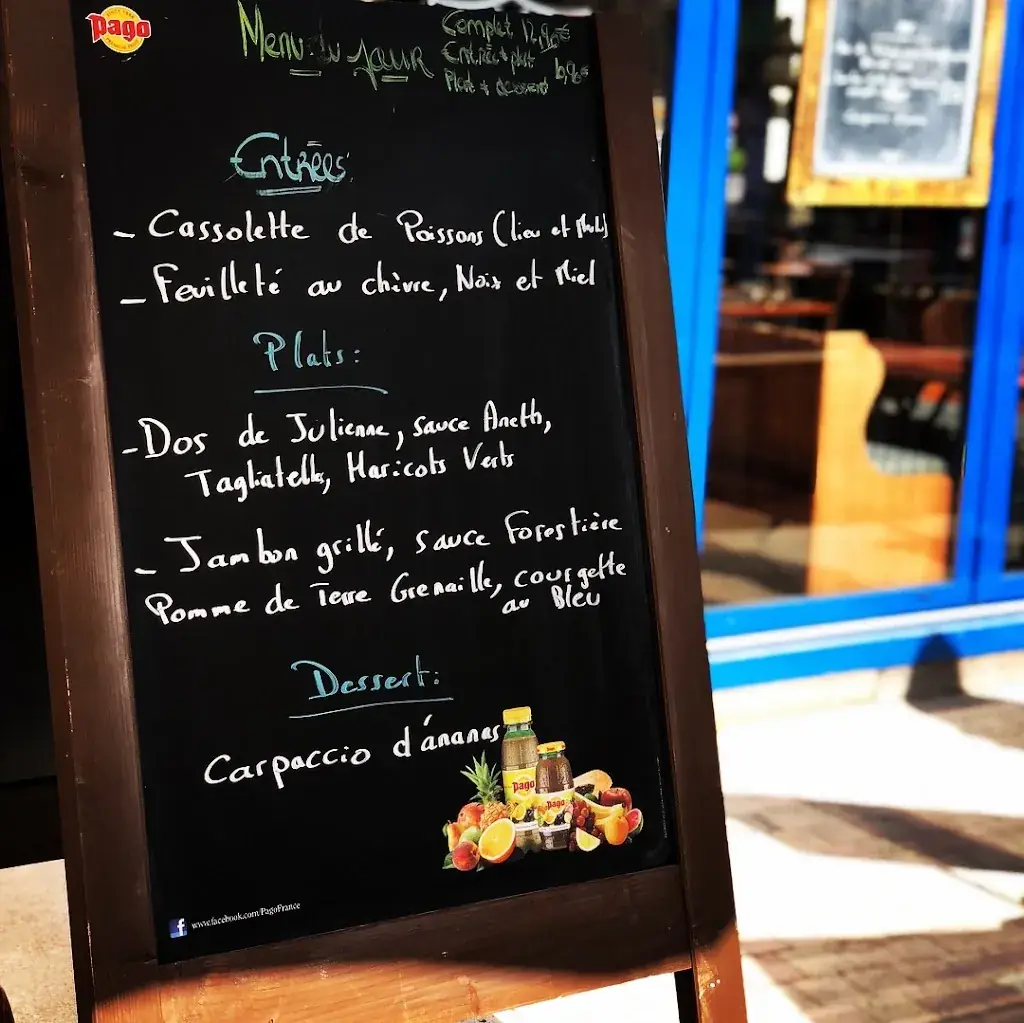 pago
Menu du jour
Complet 12,90€
Entrée + plat
Plat + dessert
Entrées:
- Cassolette de Poissons (lieu et
- Feuilleté au chèvre, Noix et Miel
Plats:
- Dos de Julienne, sauce Aneth,
Tagliatelle, Haricots Verts
- Jambon grillé, sauce Forestière
Pomme de Terre Grenaille, courgette
au Bleu
Dessert:
Carpaccio d'ánanas
pago
pago
f www.facebook.com/PagoFrance